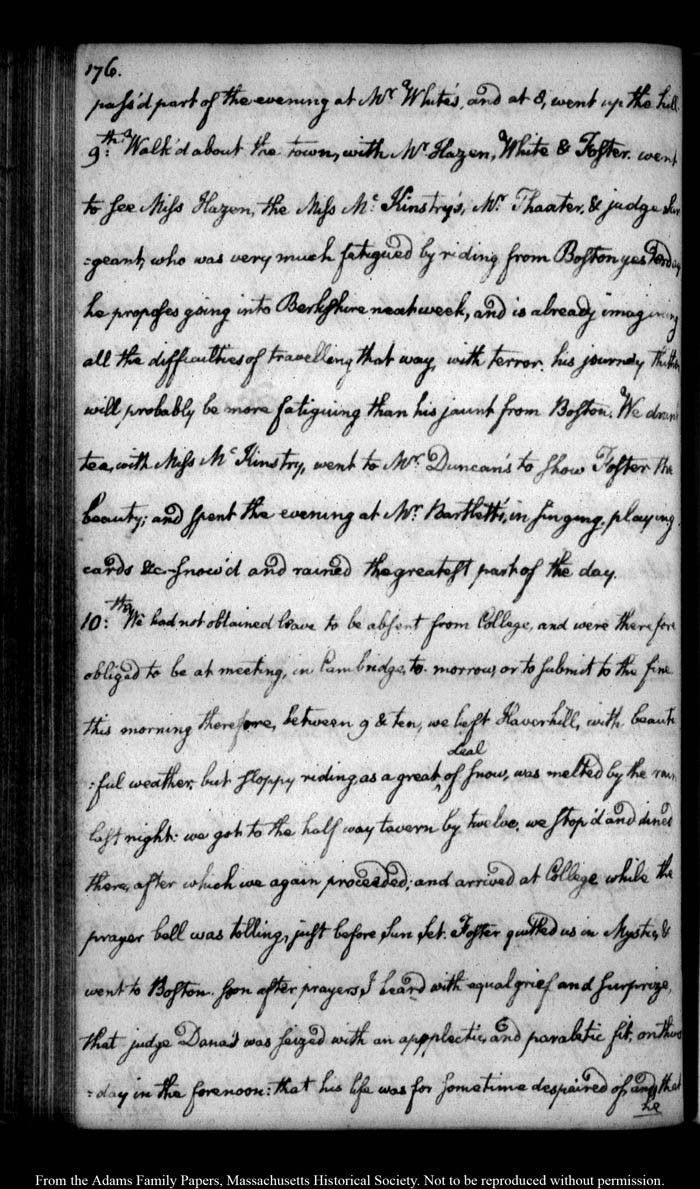 176.
pass'd part of the evening at Mr. White's, and at 8, went up the hill.
9:th. Walk'd about the town, with Mr. Hazen, White & Foster. went
to see Miss Hazen, the Miss Mc. Kinstry's, Mr. Thaxter, & judge Sar
=geant, who was very much fatigued by riding from Boston yesterday
he proposes going into Berkshire next week, and is already imagining
all the difficulties of travelling that way, with terror. his journey thither
will probably be more fatiguing than his jaunt from Boston. We drank
tea, with Miss Mc Kinstry, went to Mr. Duncan's to show Foster the
beauty; and spent the evening at Mr. Bartlett's, in singing, playing
cards &c. snow'd and rained the greatest part of the day.
10:th. We had not obtained leave to be absent from College, and were therefore
obliged to be at meeting, in Cambridge, to-morrow, or to submit to the fine
this morning therefore, between 9 & ten, we left Haverhill, with beauti
=ful weather, but sloppy riding as a great
deal
^ of snow, was melted by the rain
last night: we got to the half way tavern by twelve. we stop'd and dined
there, after which we again proceeded; and arrived at College while the
prayer bell was tolling, just before Sun, set. Foster quitted us in Mystic, &
went to Boston. soon after prayers, I heard with equal grief and surprize,
that judge Dana's was seized with an appplectic, and paraletic fit, on thurs
=day in the forenoon: that his life was for sometime despaired of, and that
he
From the Adams Family Papers, Massachusetts Historical Society. Not to be reproduced without permission.